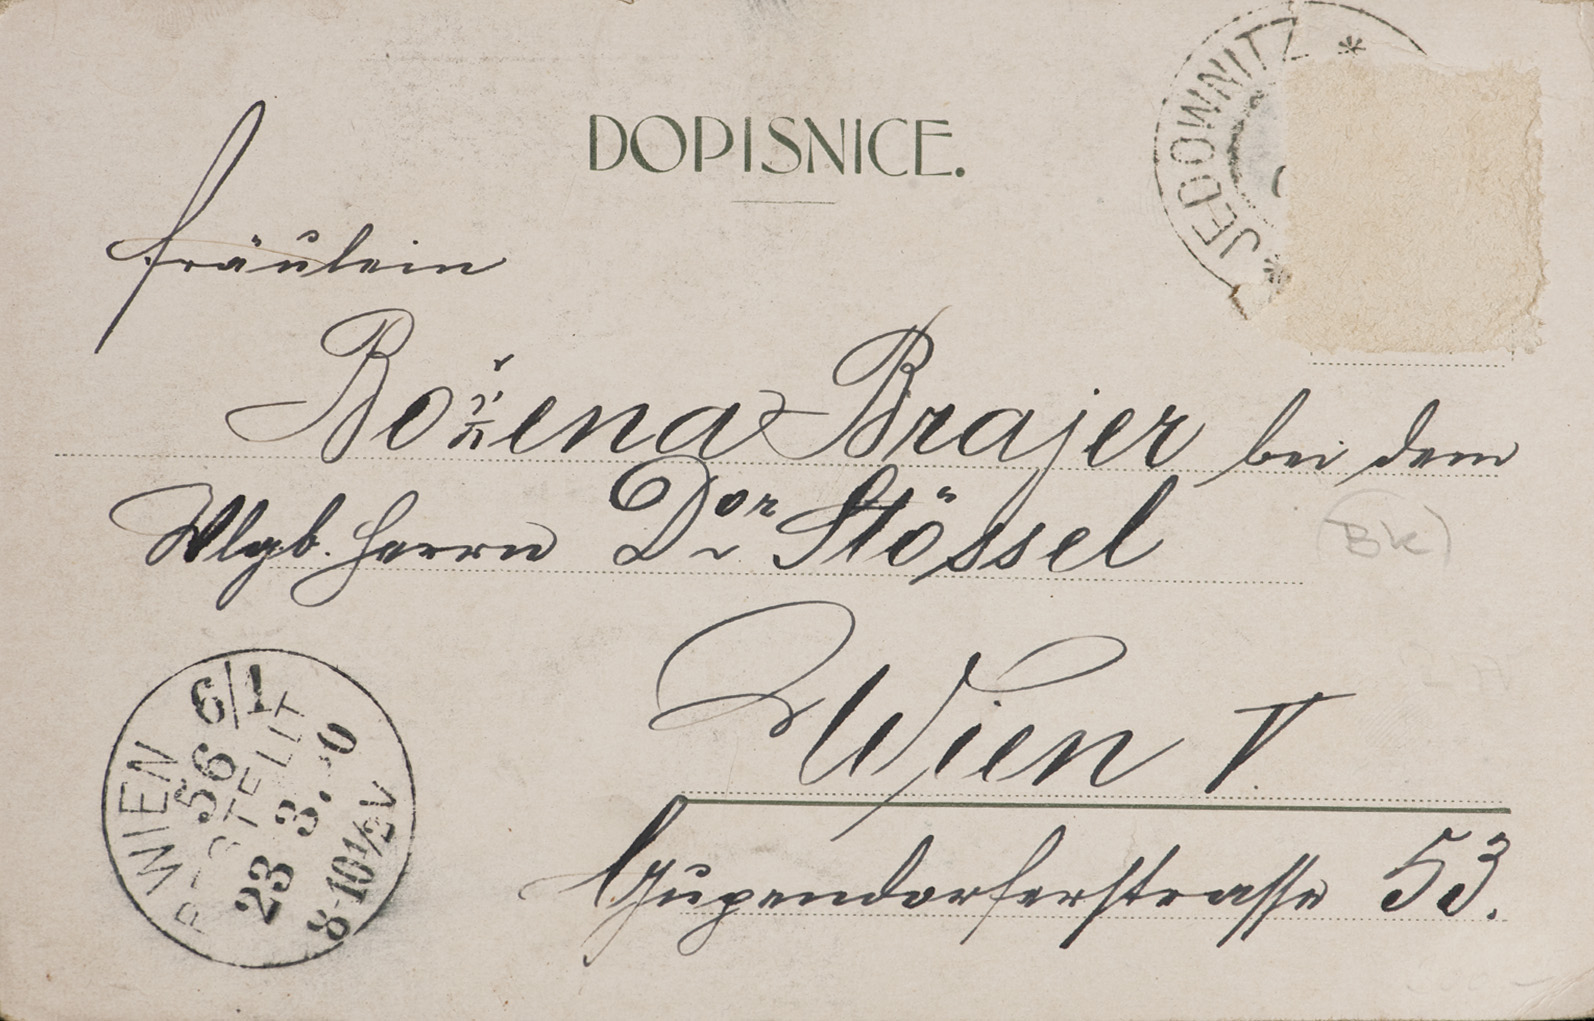 DOPISNICE.
* JEDOWNITZ *
Fräulein
Božena Brajer bei dem
Wlgb. Herrn Dor Stössel
(BK)
Wien V
Gupendorferstrasse 53.
WIEN 6/1
56
BESTELLT
23 3. 0
8-10½V